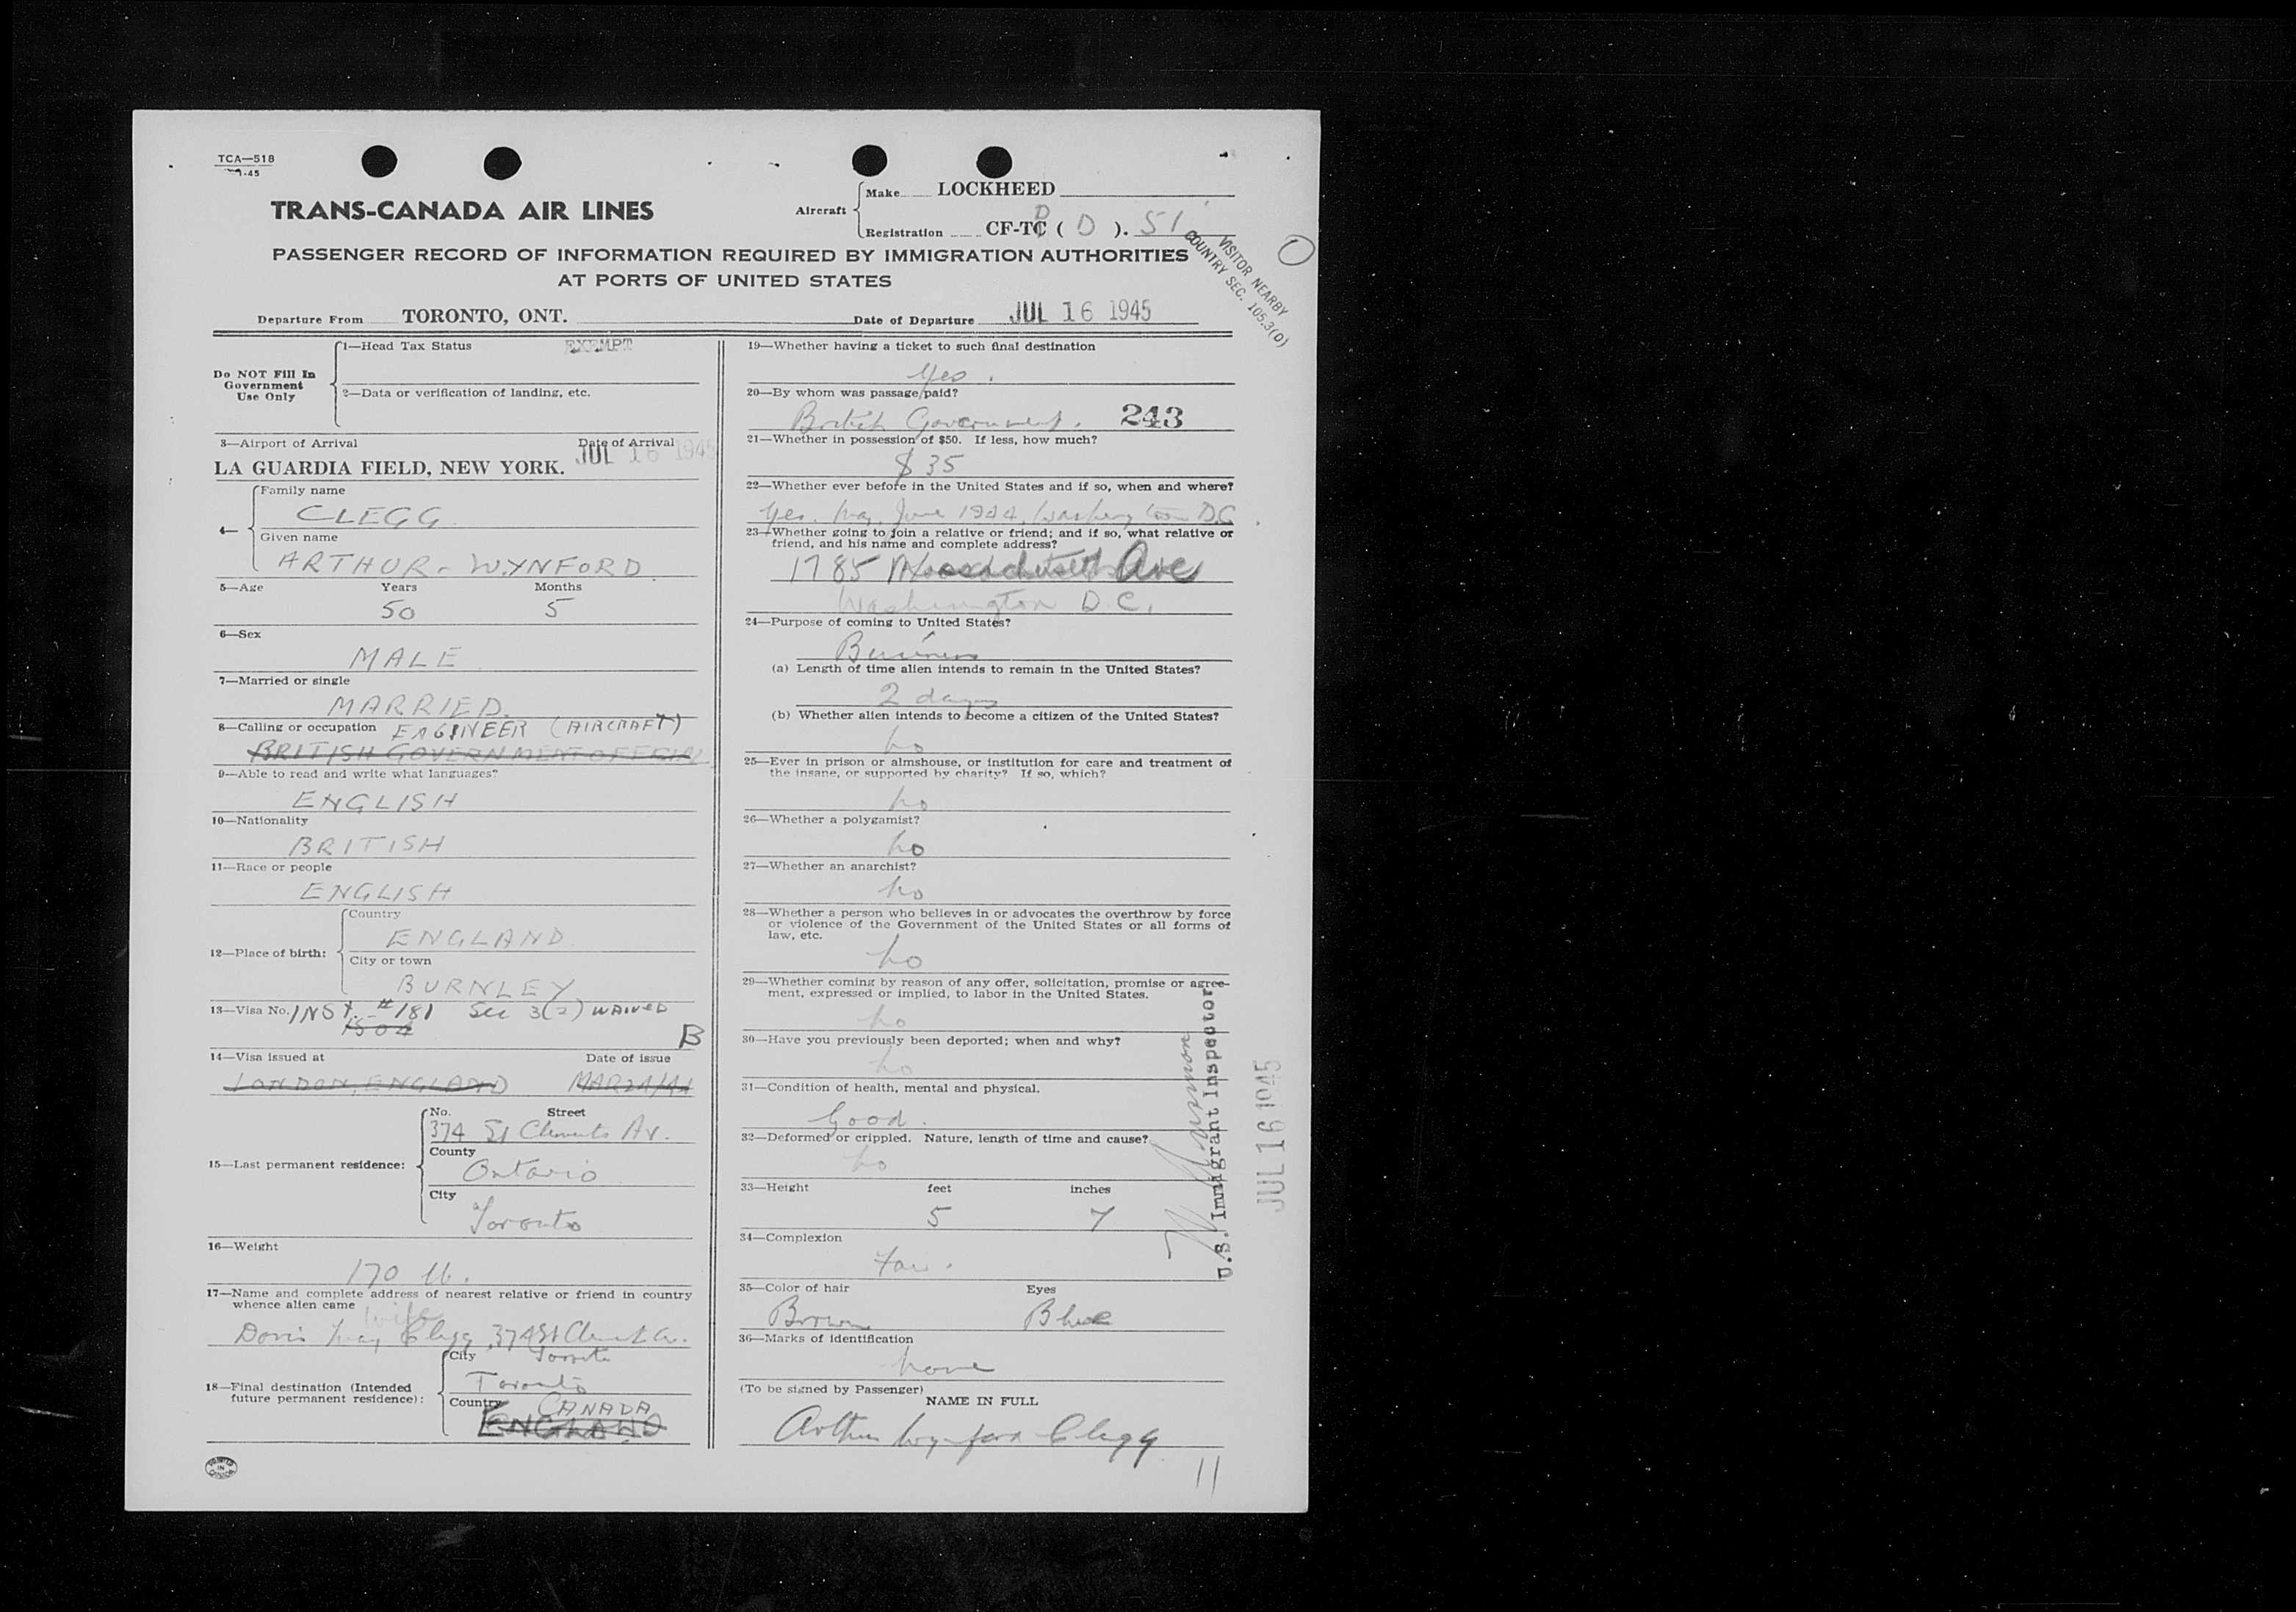 TCA—518
1-45
TRANS-CANADA AIR LINES
Aircraft
Make LOCKHEED
Registration CF-TC D ( D ). 51
VISITOR NEARBY
COUNTRY SEC. 105.3(0)
PASSENGER RECORD OF INFORMATION REQUIRED BY IMMIGRATION AUTHORITIES
AT PORTS OF UNITED STATES
Departure From TORONTO, ONT. Date of Departure JUL 16 1945
Do NOT Fill In
Government
Use Only
1—Head Tax Status EXEMPT
2—Data or verification of landing, etc.
3—Airport of Arrival Date of Arrival
LA GUARDIA FIELD, NEW YORK. JUL 16 1945
4—
Family name
CLEGG
Given name
ARTHUR - WYNFORD
5—Age Years Months
50 5
6—Sex
MALE
7—Married or single
MARRIED.
8—Calling or occupation ENGINEER (AIRCRAFT)
BRITISH GOVERNMENT OFFICIAL
9—Able to read and write what languages?
ENGLISH
10—Nationality
BRITISH
11—Race or people
ENGLISH
12—Place of birth:
Country
ENGLAND
City or town
BURNLEY
13—Visa No. INST. #181 Sec 3(2) WAIVED
1504
B
14—Visa issued at Date of issue
LONDON, ENGLAND
15—Last permanent residence:
No. Street
374 St Clements Av.
County
Ontario
City
Toronto
16—Weight
170 lb.
17—Name and complete address of nearest relative or friend in country
whence alien came
wife
Doris May Clegg 374 St Clement Av.
Toronto
18—Final destination (Intended
future permanent residence):
City
Toronto
Country CANADA
ENGLAND
PRINTED IN CANADA
19—Whether having a ticket to such final destination
Yes.
20—By whom was passage paid?
British Government. 243
21—Whether in possession of $50. If less, how much?
$35
22—Whether ever before in the United States and if so, when and where?
Yes. May, June 1944, Washington D.C.
23—Whether going to join a relative or friend; and if so, what relative or
friend, and his name and complete address?
1785 Massachusetts Ave
Washington D.C.
24—Purpose of coming to United States?
Business
(a) Length of time alien intends to remain in the United States?
2 days
(b) Whether alien intends to become a citizen of the United States?
no
25—Ever in prison or almshouse, or institution for care and treatment of
the insane, or supported by charity? If so, which?
no
26—Whether a polygamist?
no
27—Whether an anarchist?
no
28—Whether a person who believes in or advocates the overthrow by force
or violence of the Government of the United States or all forms of
law, etc.
no
29—Whether coming by reason of any offer, solicitation, promise or agree-
ment, expressed or implied, to labor in the United States.
no
30—Have you previously been deported; when and why?
no
31—Condition of health, mental and physical.
Good.
32—Deformed or crippled. Nature, length of time and cause?
no
33—Height feet inches
5 7
34—Complexion
Fair.
35—Color of hair Eyes
Brown Blue
36—Marks of identification
none
(To be signed by Passenger)
NAME IN FULL
Arthur Wynford Clegg
U.S. Immigrant Inspector
JUL 16 1945
11